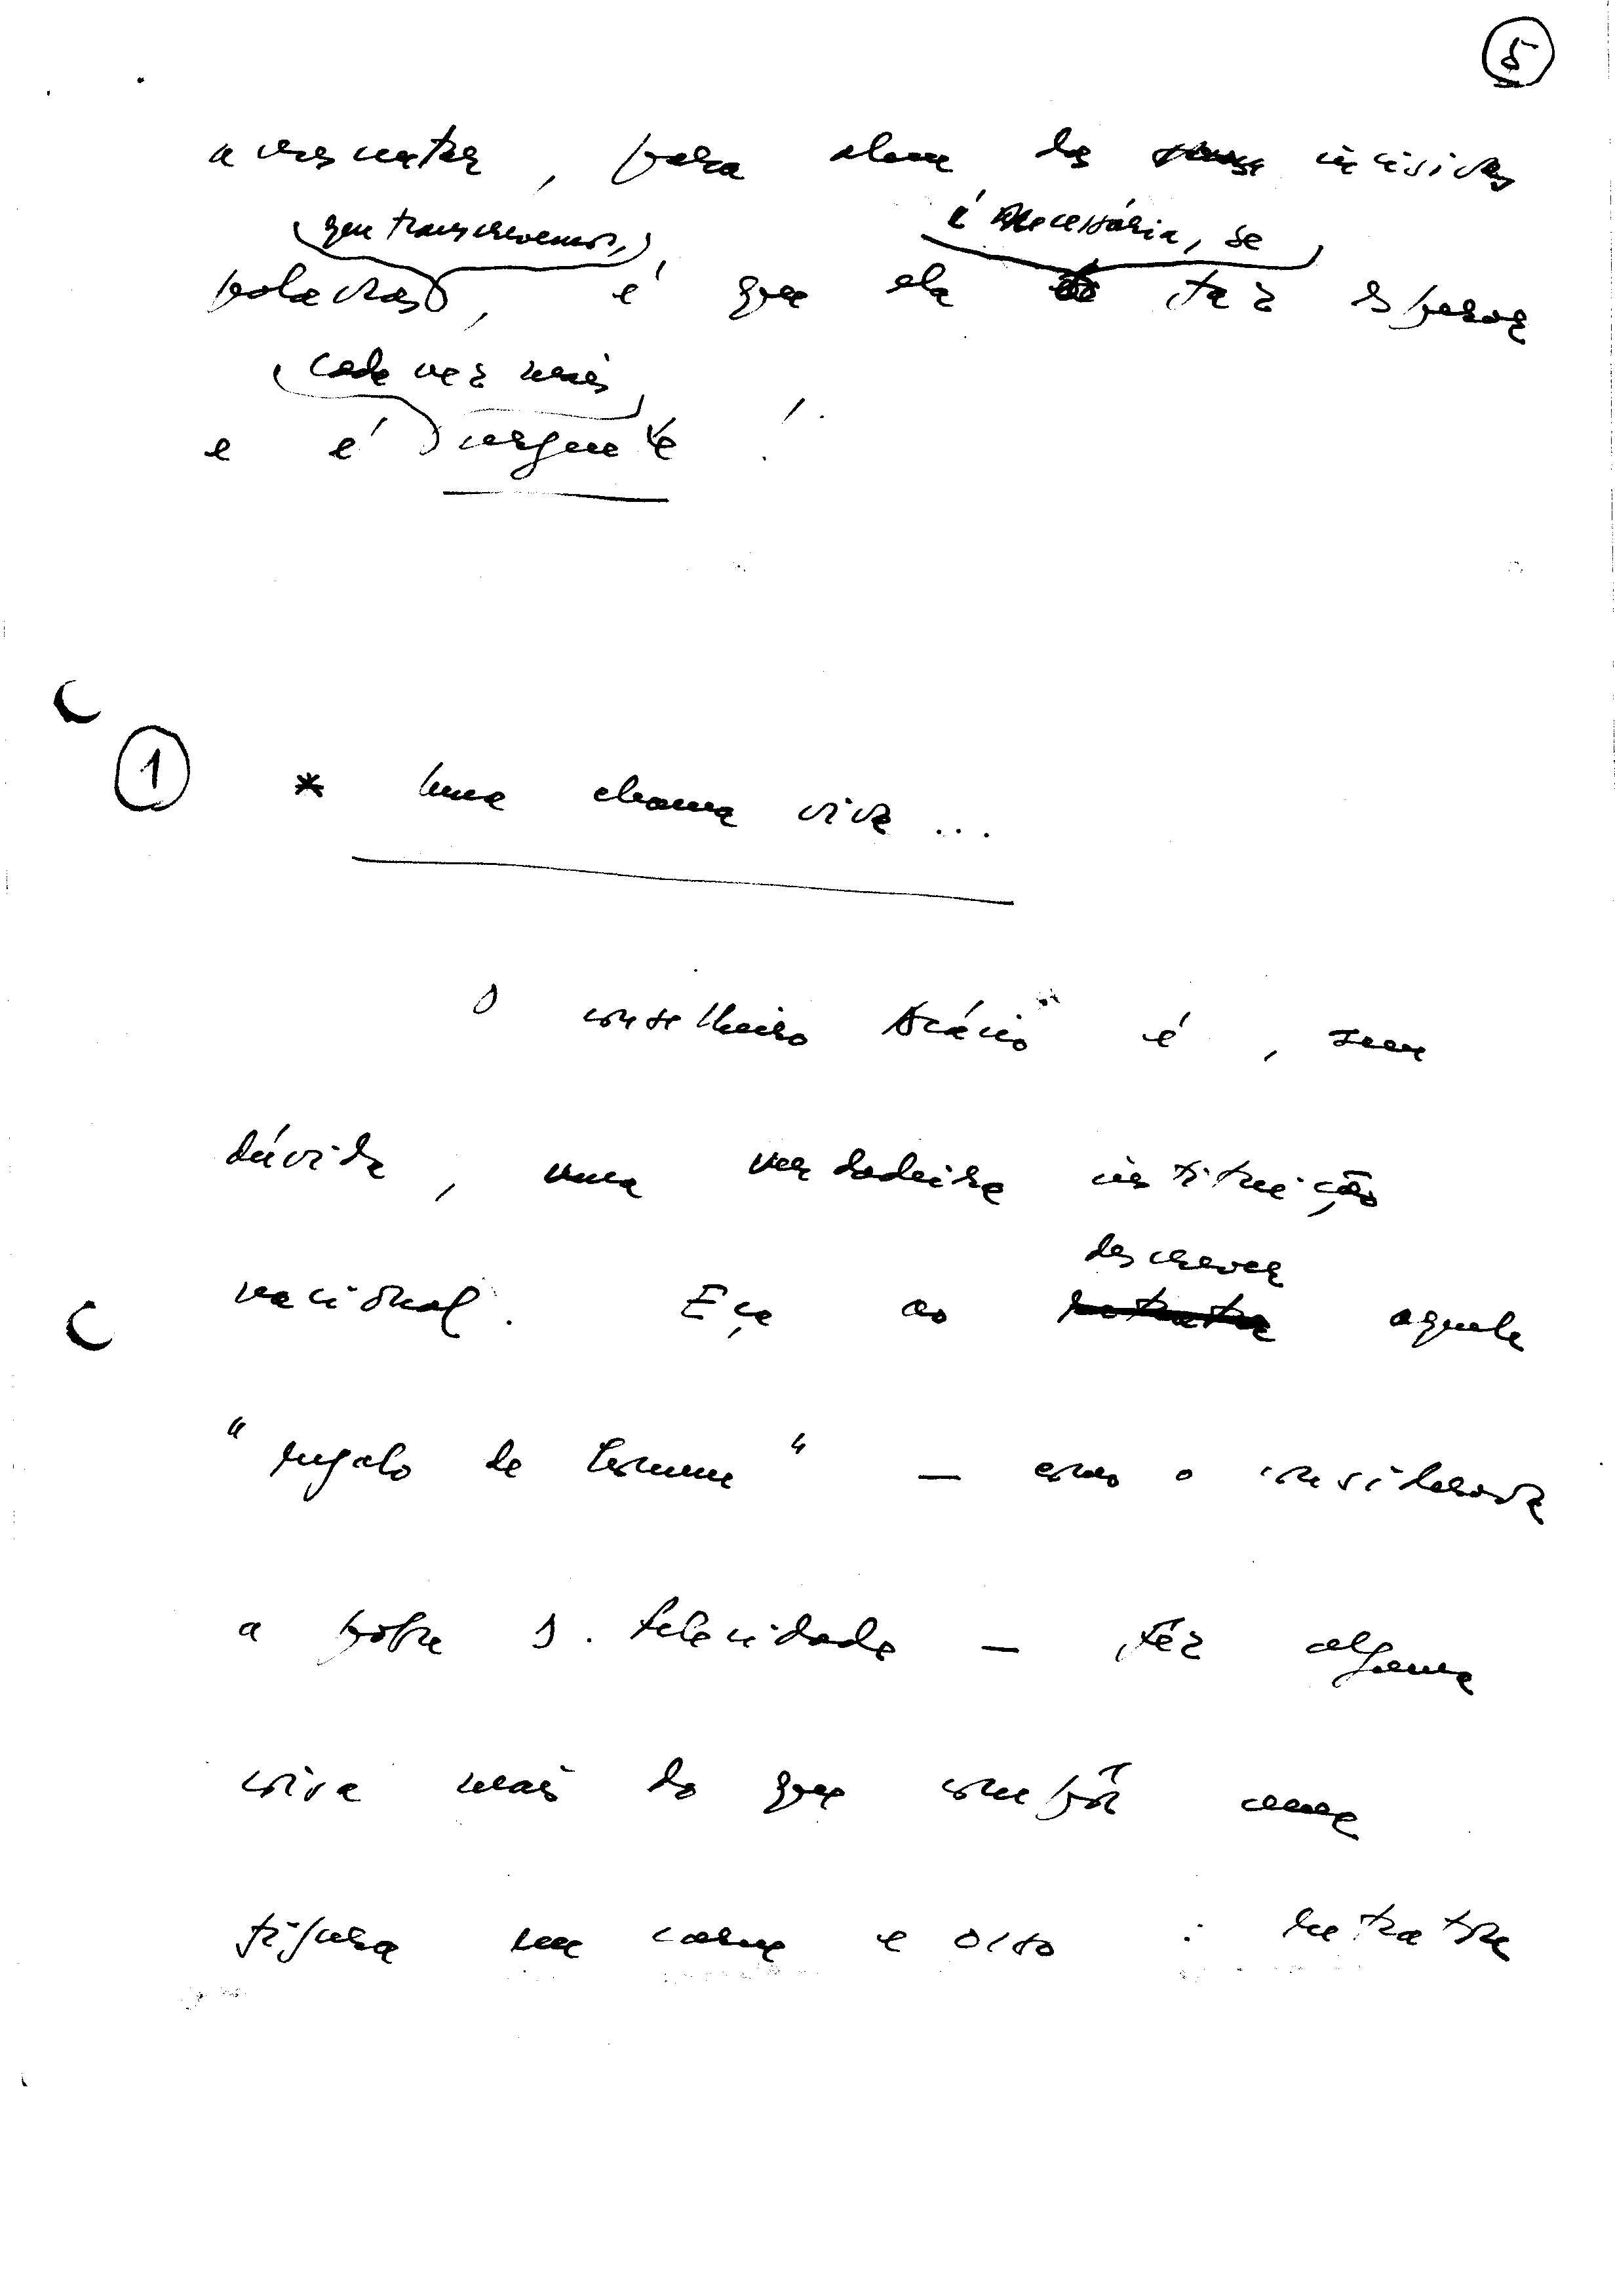 5
acrescentar, para além das incisivas
que transcrevemos, é necessária, se
palavras, é que ela faz esperar
cada vez mais
e é urgente!
1 * Uma chama viva...
O conselheiro Acácio é, sem
dúvida, uma verdadeira instituição
descrever
nacional. Eça ao retratar aquele
"regalo de homem" — como o considerava
a pobre D. Felicidade — fêz alguma
coisa mais do que compôr uma
figura em carne e osso: retratou